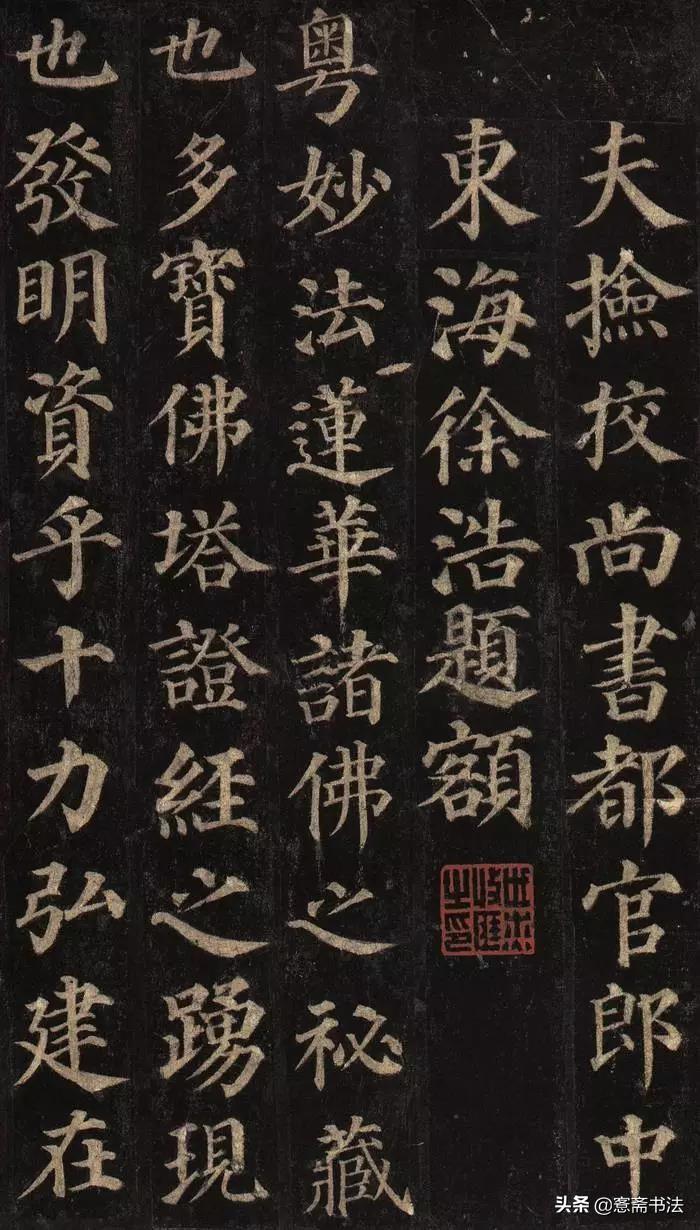 夫撿挍尚書都官郎中
東海徐浩題額
粵妙法蓮華諸佛之秘藏
也多寶佛塔證經之踴現
也發明資乎十力弘建在
头条@窓斋书法